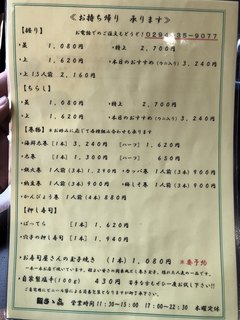 ≪お持ち帰り 承ります≫
お電話でのご注文もどうぞ！0294-35-9077
【握り】
・並 1,080円 ・特上 2,700円
・上 1,620円 ・本日のおすすめ(ウニ入り) 3,240円
・上1.5人前 2,160円
【ちらし】
・並 1,080円 ・特上 2,700円
・上 1,620円 ・本日のおすすめ(ウニ入り) 3,240円
【巻物】 ＊お好みに応じて各種組み合わせも承ります
・海鮮太巻【1本】 3,240円 【ハーフ】 1,620円
・太巻 【1本】 1,300円 【ハーフ】 650円
・鉄火巻 1人前 1,290円 ・カッパ巻 1人前 900円
・納豆巻 1人前 900円 ・梅しそ巻 1人前 900円
・かんぴょう巻 1人前 880円
【押し寿司】
・ばってら 【1本】 1,620円
・穴子の押し寿司【1本】 1,940円
・お寿司屋さんの玉子焼き (1本) 1,080円 ＊要予約
・自家製塩辛(100g) 430円
営業時間 11:30～15:00 17:00～22:30 水曜定休